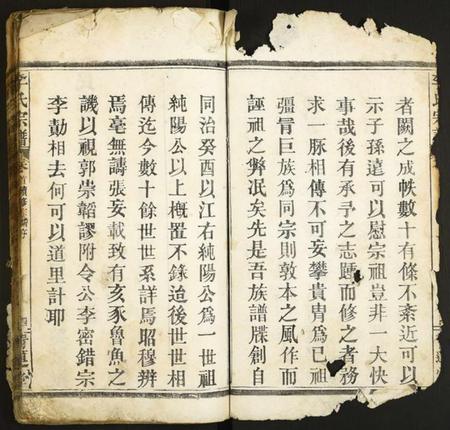 者闕之成帙數十有條不紊近可以
示子孫遠可以慰宗祖豈非一大快
事哉後有承予之志踵而修之者務
求一脈相傳不可妄攀貴冑爲已祖
彊冐巨族爲同宗則敦本之風作而
誣祖之弊泯矣先是吾族譜牒創自
同治癸酉以江右純陽公爲一世祖
純陽公以上槪置不錄迨後世世相
傳迄今數十餘世世系詳焉昭穆辨
焉毫無譸張妄載致有亥豕魯魚之
譏以視郭崇韜謬附令公李密錯宗
李勣相去何可以道里計耶
李氏宗譜